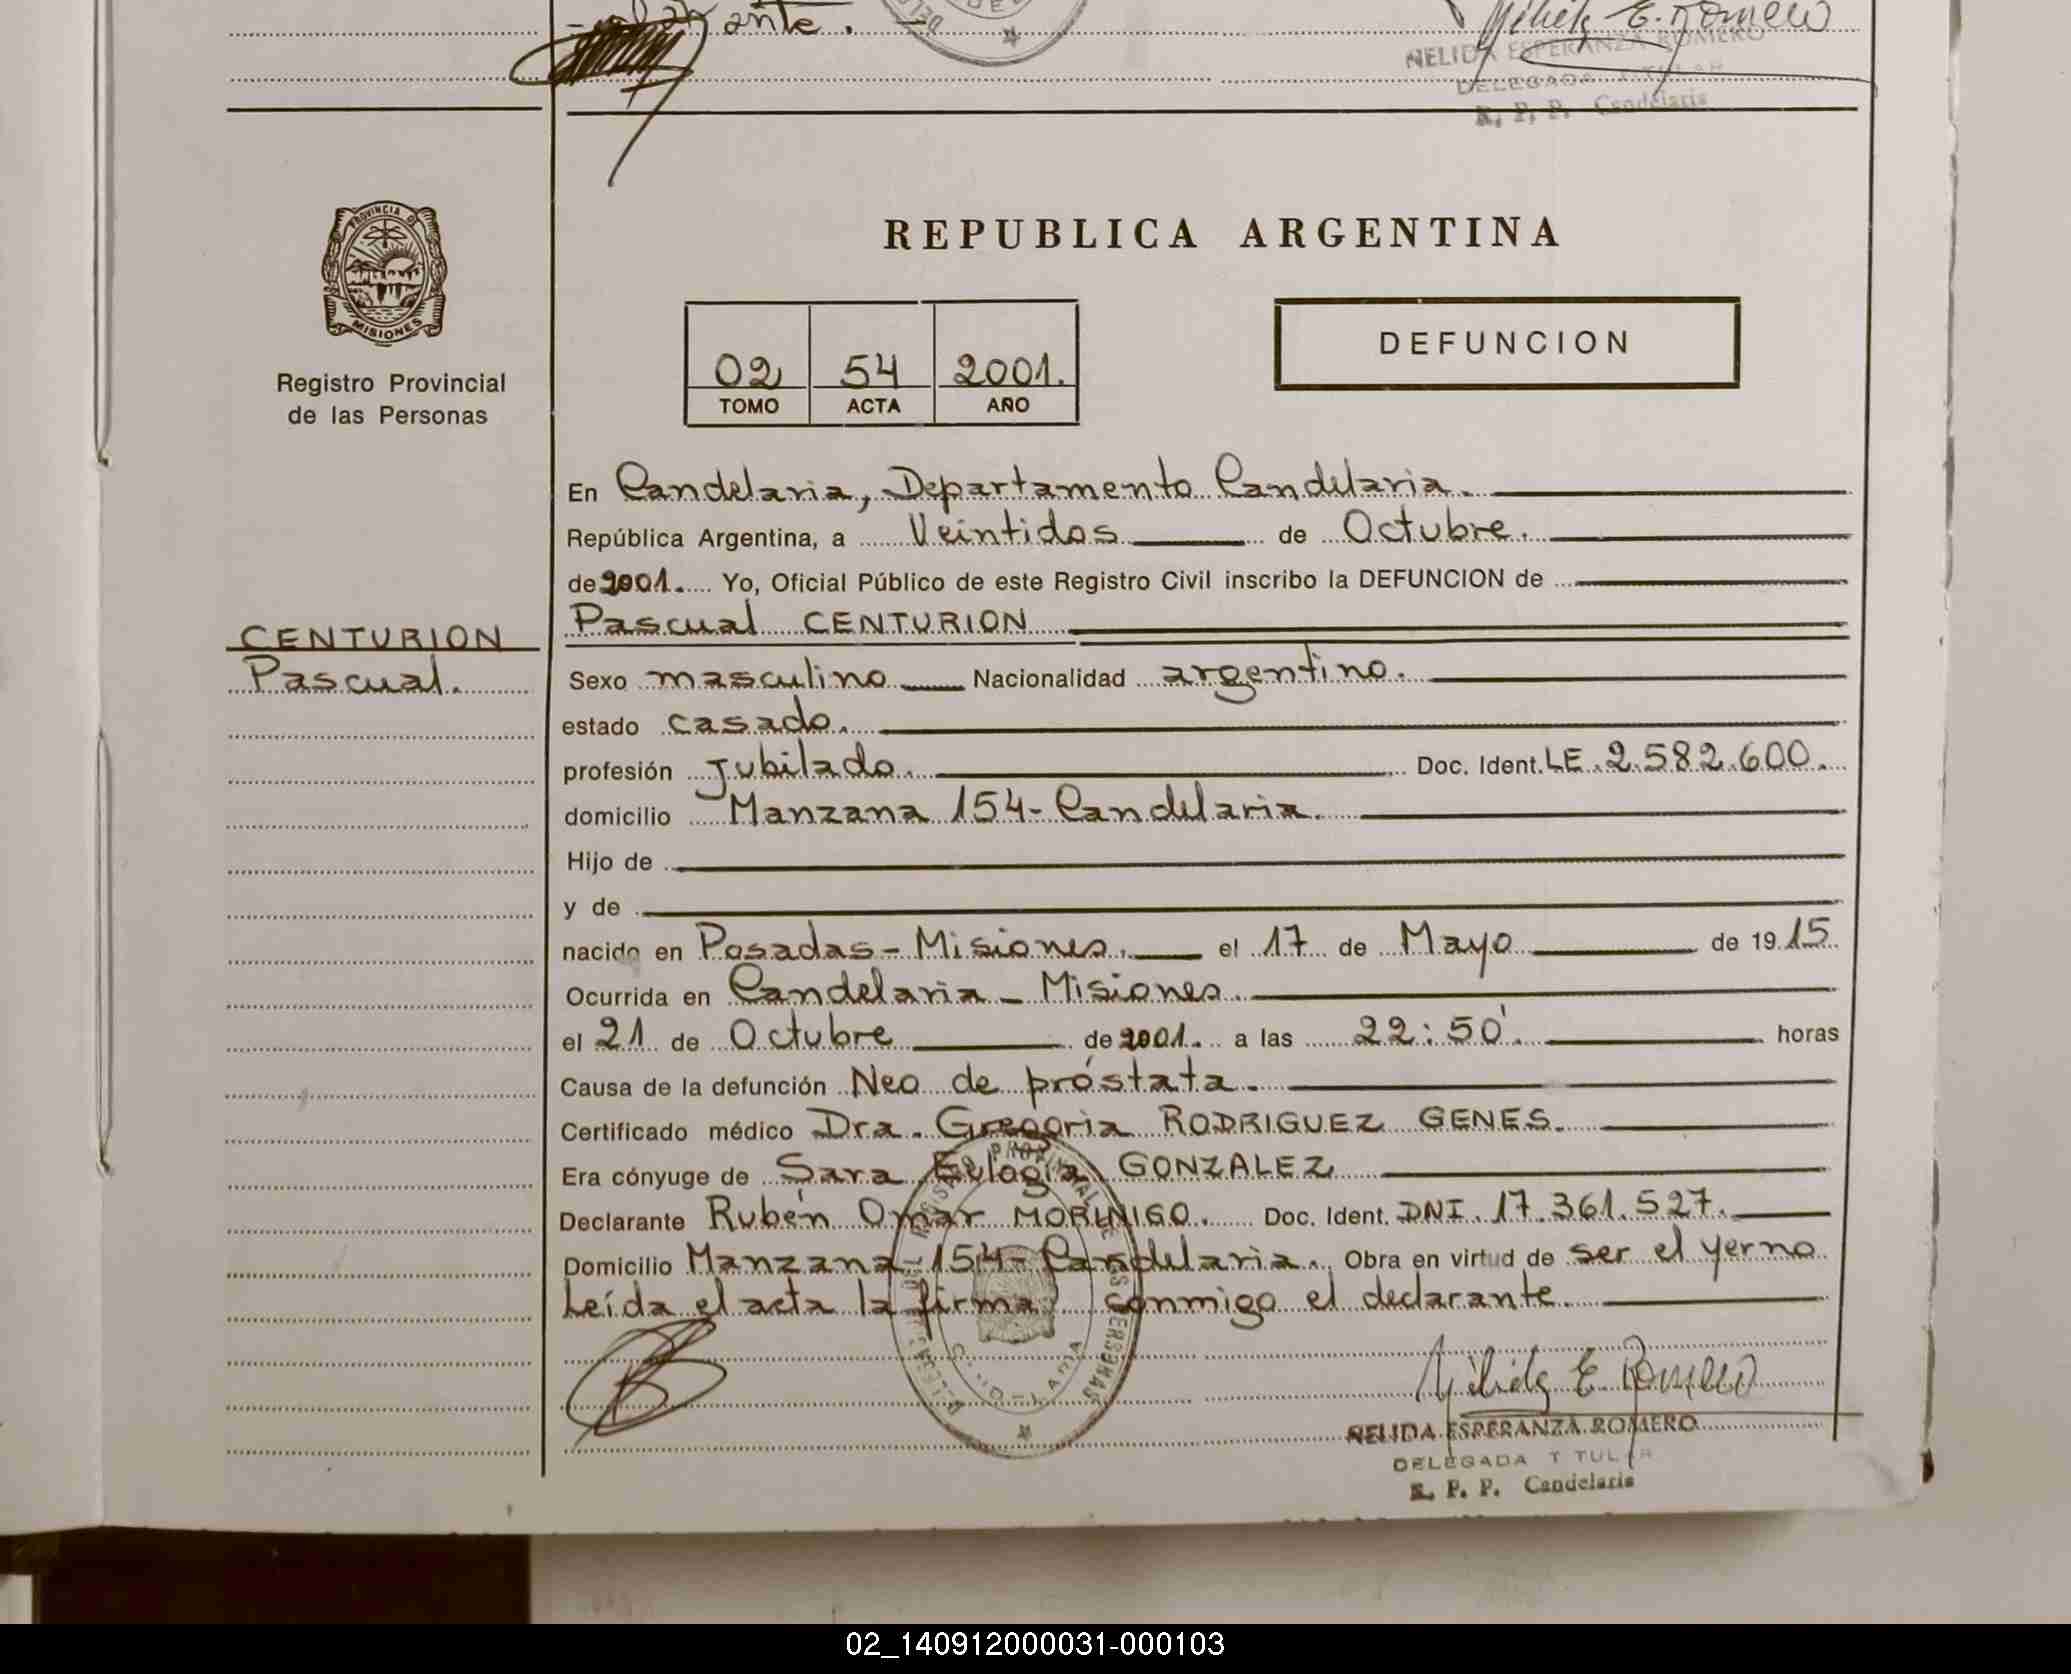 ante.
Nélida E. Romero
NELIDA ESPERANZA ROMERO
DELEGADA TITULAR
R. P. P. Candelaria
PROVINCIA DE
MISIONES
Registro Provincial
de las Personas
REPUBLICA ARGENTINA
02 54 2001.
TOMO ACTA AÑO
DEFUNCION
En Candelaria, Departamento Candelaria.
República Argentina, a Veintidos de Octubre.
de 2001. Yo, Oficial Público de este Registro Civil inscribo la DEFUNCION de
Pascual CENTURION
CENTURION
Pascual.
Sexo masculino Nacionalidad argentino.
estado casado.
profesión Jubilado. Doc. Ident. LE. 2.582.600.
domicilio Manzana 154-Candelaria.
Hijo de
y de
nacido en Posadas-Misiones. el 17 de Mayo de 1915
Ocurrida en Candelaria - Misiones.
el 21 de Octubre de 2001. a las 22:50'. horas
Causa de la defunción Neo de próstata.
Certificado médico Dra. Gregoria RODRIGUEZ GENES.
Era cónyuge de Sara Eulogia GONZALEZ
Declarante Rubén Omar MORINIGO. Doc. Ident. DNI. 17.361.527.
Domicilio Manzana 154-Candelaria. Obra en virtud de ser el yerno
Leída el acta la firma conmigo el declarante.
Nélida E. Romero
NELIDA ESPERANZA ROMERO
DELEGADA TITULAR
R. P. P. Candelaria
02_140912000031-000103